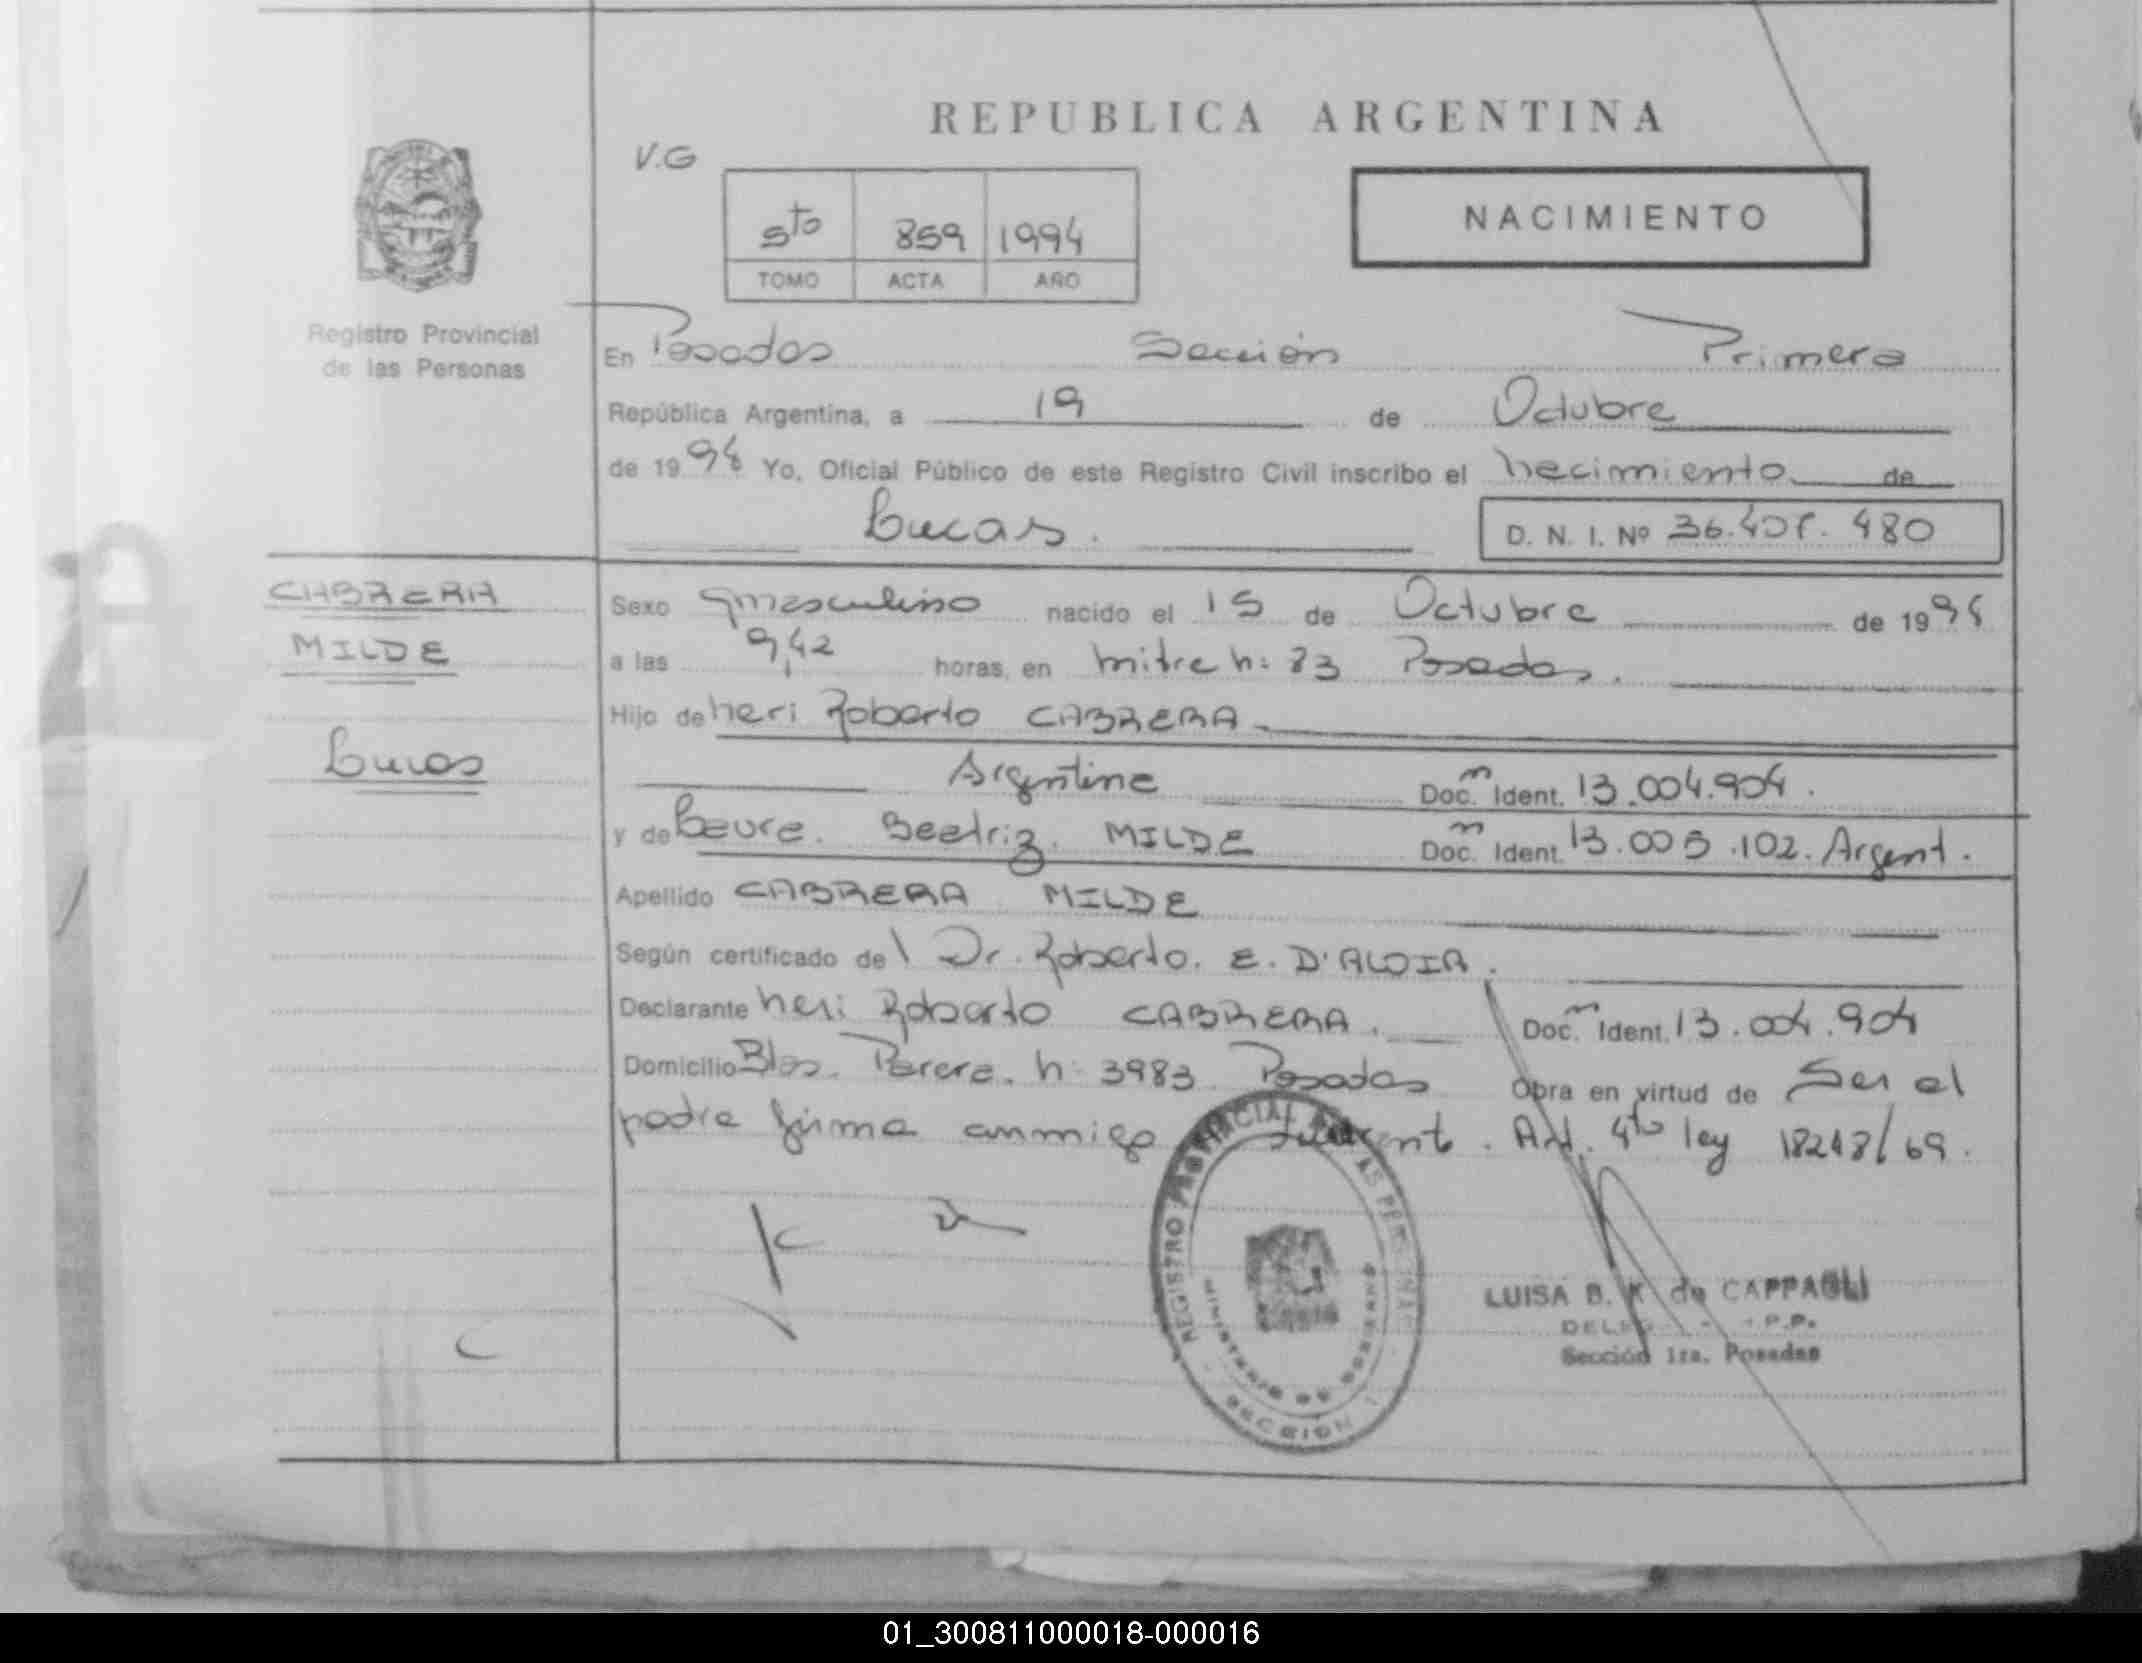 REPUBLICA ARGENTINA
V.G
5to 859 1994
TOMO ACTA AÑO
NACIMIENTO
Registro Provincial
de las Personas
En Posadas Sección Primera
República Argentina, a 19 de Octubre
de 1994 Yo, Oficial Público de este Registro Civil inscribo el nacimiento de
Lucas.
D. N. I. Nº 36.40 480
CABRERA
MILDE
Lucas
Sexo masculino nacido el 15 de Octubre de 1994
a las 9,42 horas, en Mitre n: 83 Posadas.
Hijo de Neri Roberto CABRERA
Argentina Doc. Ident. 13.004.904.
y de Laura. Beatriz. MILDE Doc. Ident. 13.005.102. Argent.
Apellido CABRERA MILDE
Según certificado de l Dr. Roberto. E. D'ALOIA.
Declarante Neri Roberto CABRERA. Doc. Ident. 13.004.904
Domicilio Blas. Parera. n: 3983 Posadas Obra en virtud de Ser el
padre firma conmigo. Art. 4to ley 18248/69.
REGISTRO PROVINCIAL DE LAS PERSONAS
MINISTERIO DE GOBIERNO
SECCION 1
LUISA B. K de CAPPAGLI
Sección 1ra. Posadas
01_300811000018-000016